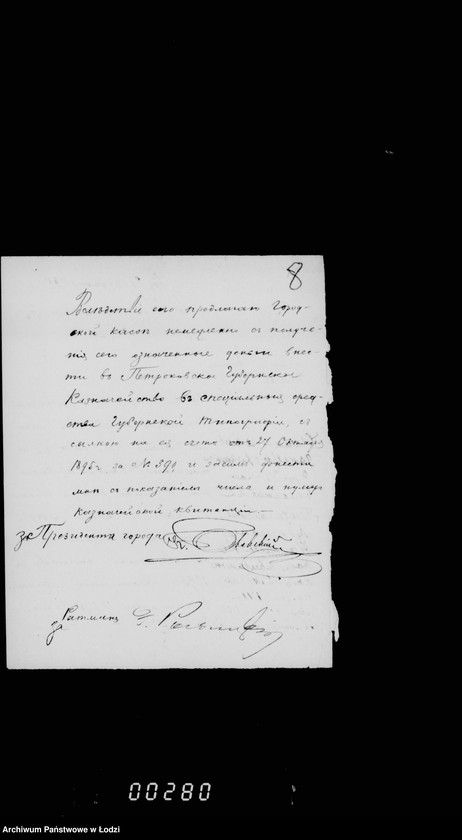 8
Вследствие сего предлагаю Город-
ской кассе немедленно с получе-
ния сего означенные деньги внес-
ти в Петроковское Губернское
Казначейство въ специальныя сред-
ства Губернской Типографии, съ
сылкою на ея счетъ отъ 27 Октября
1895 г. за № 590 и
мне съ показаниемъ числа и нумера
казначейской квитанции.
за Президента города
Ратманъ
00280
Archiwum Państwowe w Łodzi